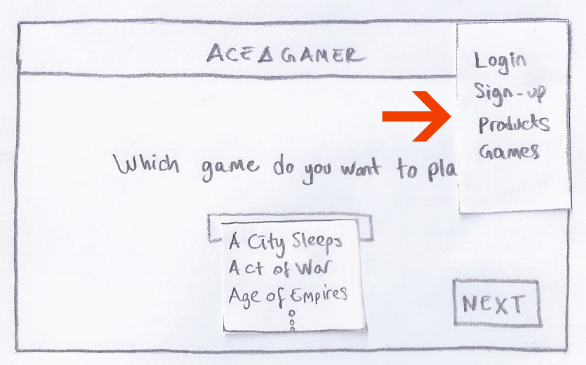 ACE A GAMER
Login
Sign-up
Products
Games
Which game do you want to pla
A City Sleeps
Act of War
Age of Empires
NEXT